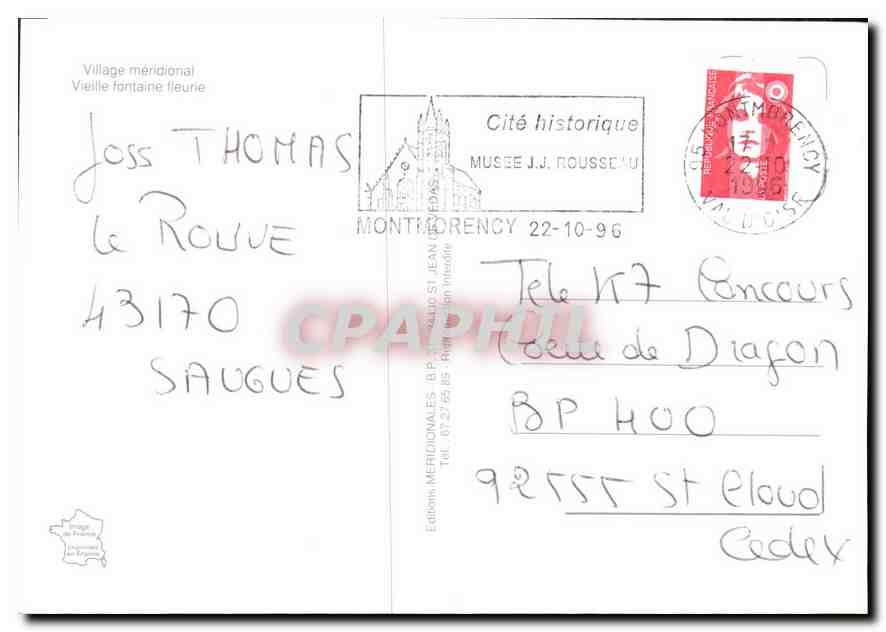 Village méridional
Vieille fontaine fleurie
Joss THOMAS
Le ROUVE
43170
SAUGUES
Image
de France
Imprimées
en France
Cité historique
MUSEE J.J. ROUSSEAU
MONTMORENCY 22-10-96
REPUBLIQUE FRANÇAISE
LA POSTE
95 MONTMORENCY
22-10
1996
VAL D'OISE
Editions MERIDIONALES - B.P. 34430 ST JEAN DE VEDAS
Tél. 67.27.65.89 - Reproduction Interdite
CPAPHIL
Télé K7 Concours
Coeur de Dragon
BP 400
92555 St Cloud
Cedex